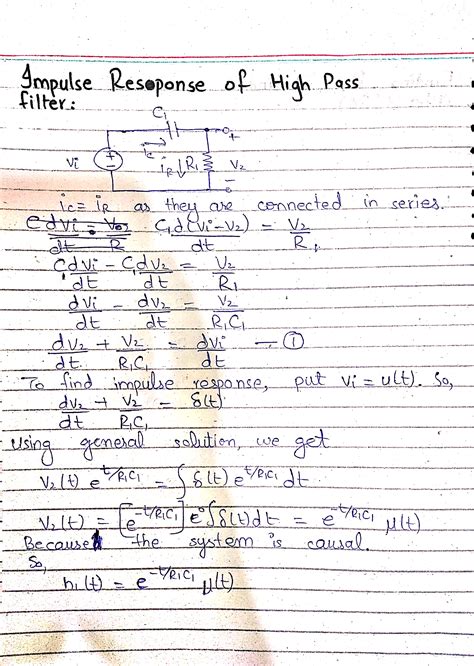 Impulse Resoponse of High Pass
filter:
C₁
+
Vi + - ic iR↓ R₁ V₂
-
ic = iR as they are connected in series.
C₁d(Vi-V₂)/dt = V₂/R₁
Cdvi/dt - C₁dv₂/dt = V₂/R₁
dvi/dt - dv₂/dt = V₂/R₁C₁
dv₂/dt + V₂/R₁C₁ = dvi/dt — ①
To find impulse response, put Vi = u(t). So,
dv₂/dt + V₂/R₁C₁ = δ(t)
Using general solution, we get
V₂(t) e^(t/R₁C₁) = ∫ δ(t) e^(t/R₁C₁) dt
V₂(t) = [e^(-t/R₁C₁)] e⁰ ∫δ(t)dt = e^(-t/R₁C₁) μ(t)
Because the system is causal.
So,
h₁(t) = e^(-t/R₁C₁) μ(t)